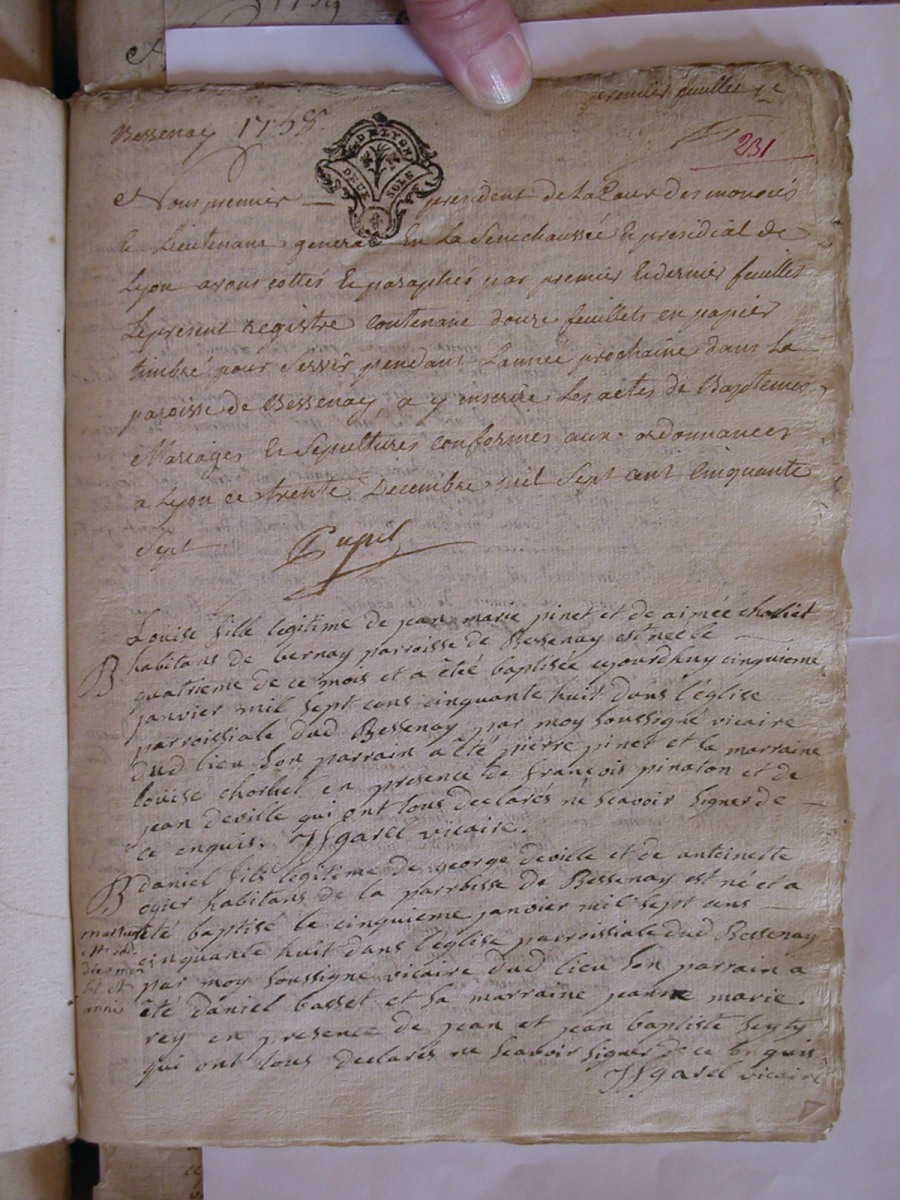 premier feuillet
Bessenay 1758
DE LYON
DEUX SOLS
231
Nous premier président de La Cour des monoies
le Lieutenant general En La Senechaussée & presidial de
Lyon avons cottés & paraphés par premier & dernier feuillets
Le present registre Contenant douze feuillets en papier
timbré pour Servir pendant L'année prochaine dans La
paroisse de Bessenay, a y inscrire Les actes de Baptemes,
Mariages & Sepultures conformes aux ordonnances
a Lyon ce trente Decembre mil Sept cent Cinquante
Sept
Pupil
Louise fille legitime de jean marie pinet et de aimée
habitans de bernay parroisse de Bessenay est neé le
B
quatrieme de ce mois et a été baptisée aujourdhuy cinquieme
janvier mil sept cens cinquante huit dans l'église
parroissiale dud Bessenay par moy soussigné vicaire
dud lieu son parrain a été pierre pinet et la marraine
louise chorbel en presence de françois pinaton et de
jean deville qui ont tous declarés ne scavoir signer de
ce enquis. garel vicaire.
daniel fils legitime de george deville et de antoinette
B
ogier habitans de la parroisse de Bessenay est né et a
été baptisé le cinquieme janvier mil sept cens
cinquante huit dans l'église parroissiale dud Bessenay
par moy soussigné vicaire dud lieu son parrain a
été daniel basset et sa marraine jeanne marie
rey en presence de jean et jean baptiste
qui ont tous declarés ne scavoir signer de ce enquis
garel vicaire